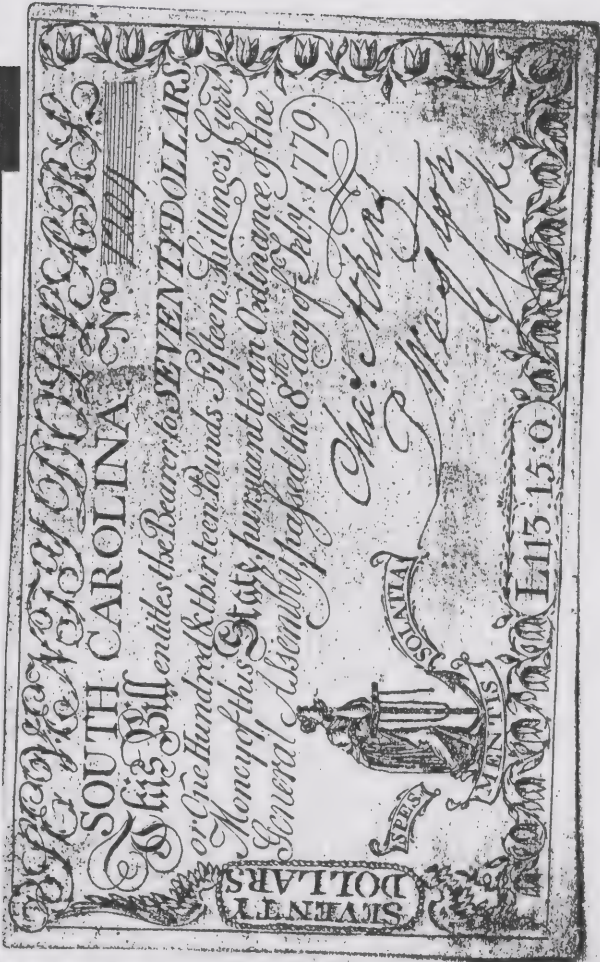 SEVENTY DOLLARS
SOUTH CAROLINA Nº
This Bill entitles the Bearer to SEVENTY DOLLARS
or One Hundred & thirteen Pounds Fifteen Shillings, Curr.t
Money of this State, pursuant to an Ordinance of the
General Assembly, passed the 8.th day of Feb.ry 1779.
Cha.s Atkins
SPES MENTIS SOLATIA
L113 15 0
SEVENTY
DOLLARS